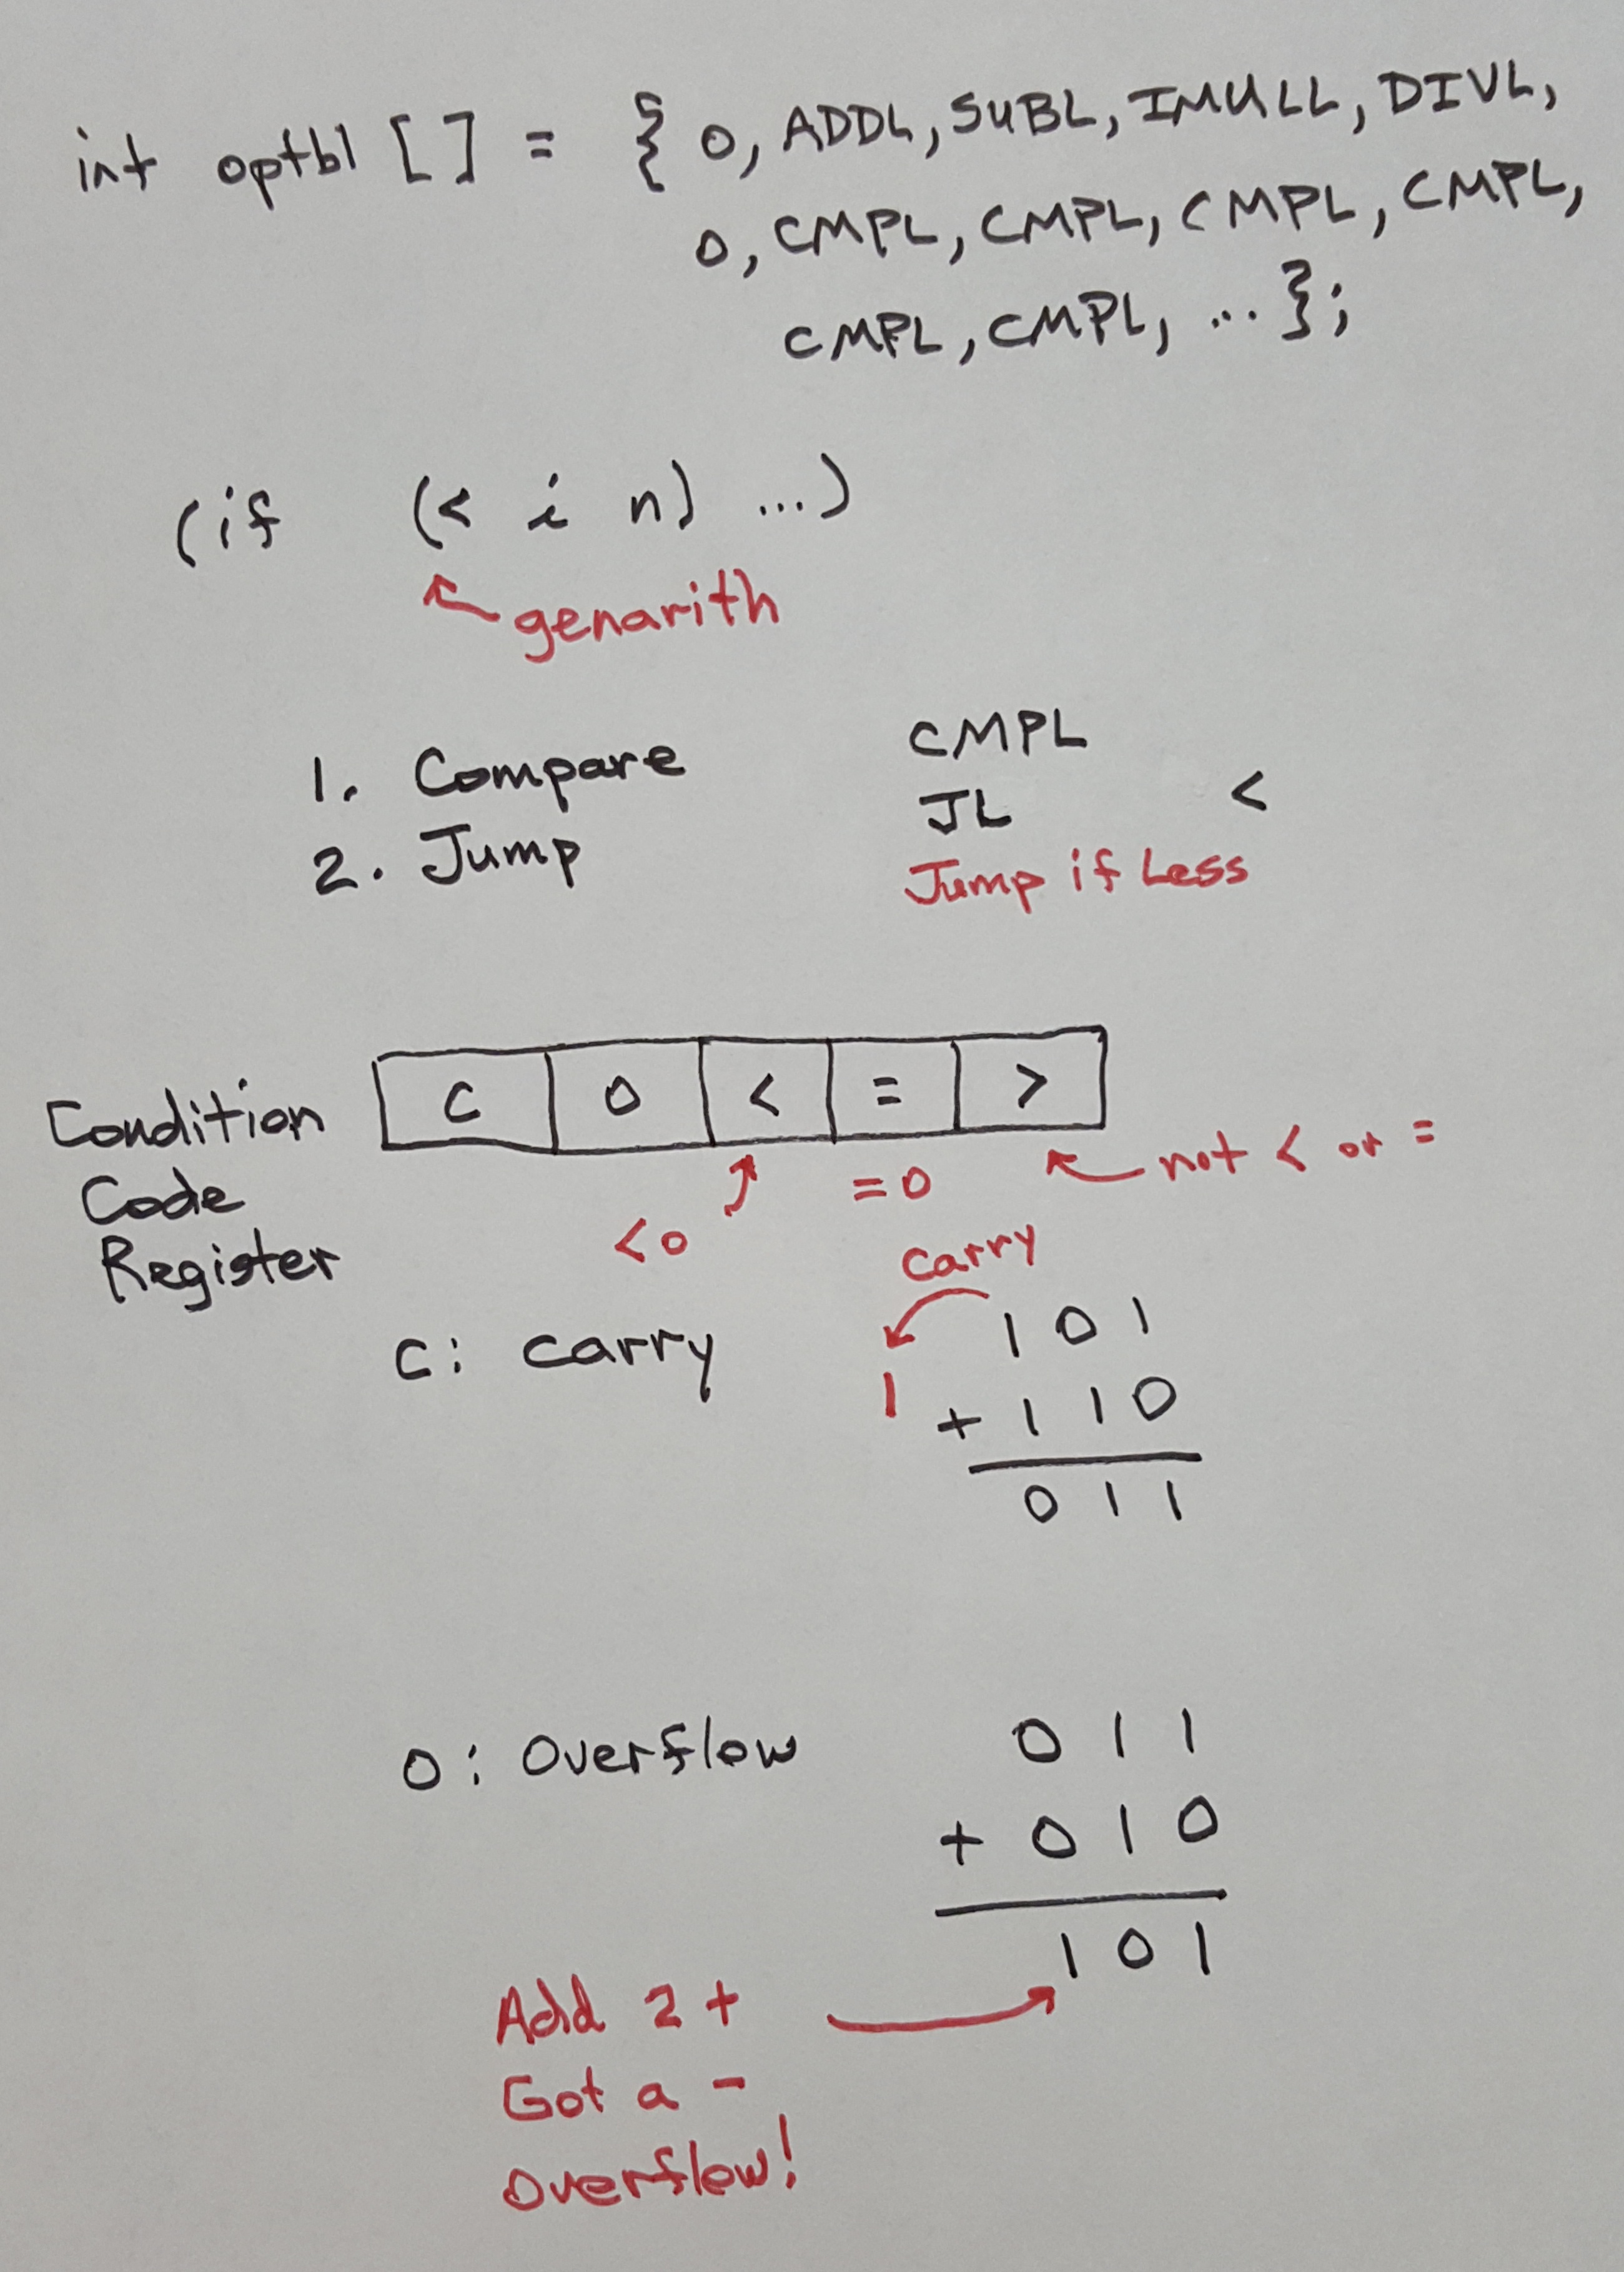 int optbl [] = { 0, ADDL, SUBL, IMULL, DIVL,
0, CMPL, CMPL, CMPL, CMPL,
CMPL, CMPL, ... };
(if (< i n) ...)
genarith
1. Compare CMPL
2. Jump JL <
Jump if Less
Condition
Code
Register
C O < = >
<0 =0 not < or =
carry
C: carry
1 0 1
1 + 1 1 0
0 1 1
O: Overflow
0 1 1
+ 0 1 0
1 0 1
Add 2 +
Got a -
Overflow!